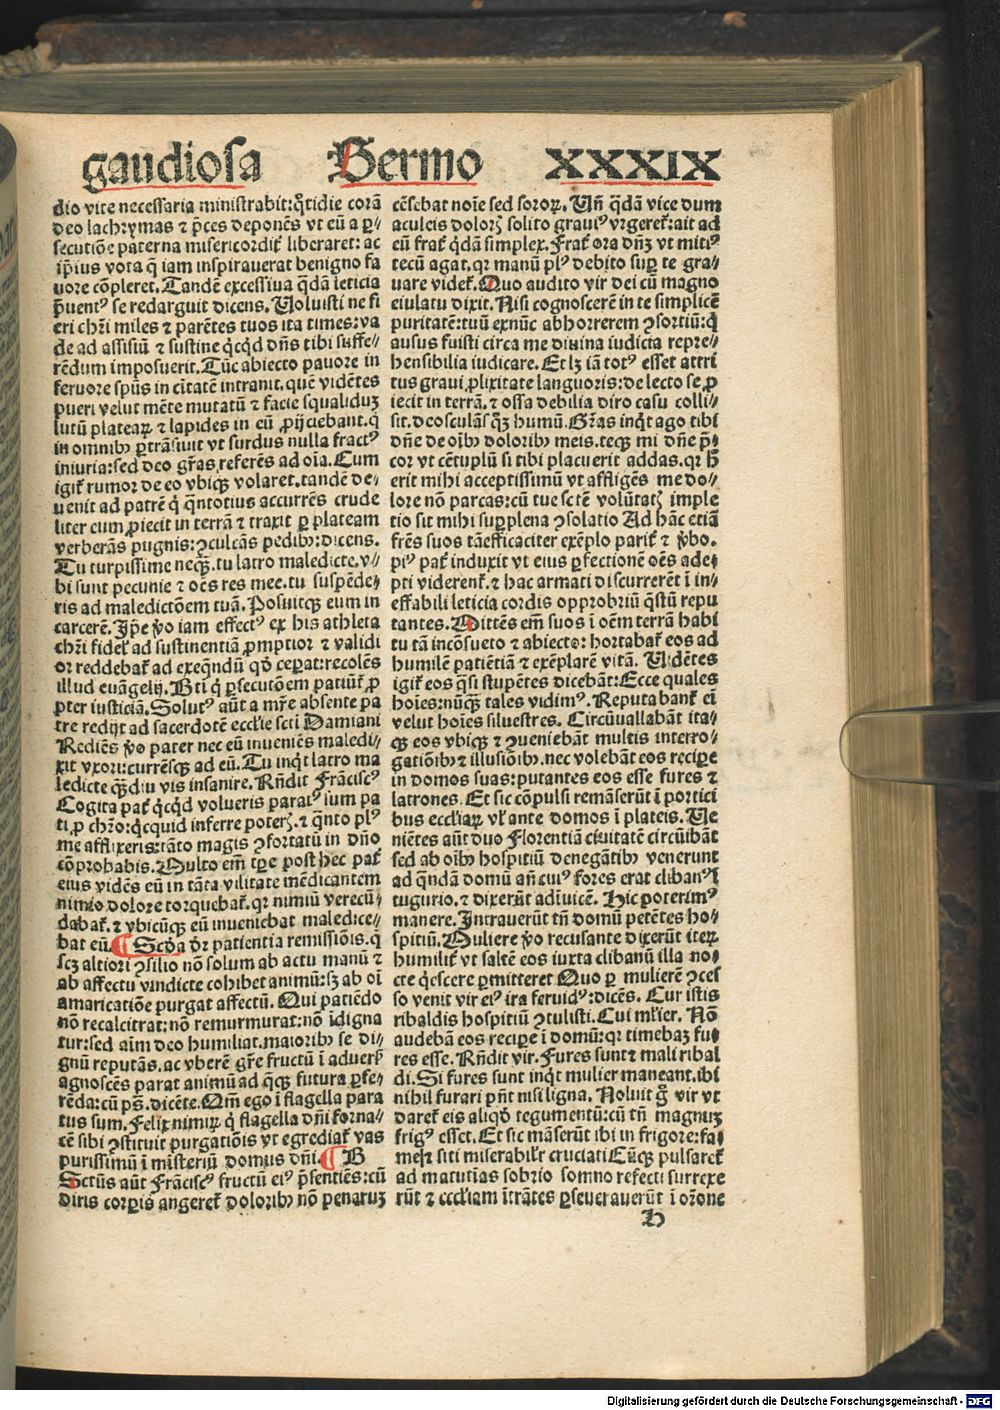 gaudiosa Sermo XXXIX
dio vite necessaria ministrabit: q̃tidie corã
deo lachrymas ⁊ p̃ces deponẽs vt eũ a ꝑ⸗
secutiõe paterna misericordit̃ liberaret: ac
ip̃ius vota q̃ iam inspirauerat benigno fa
uore cõpleret. Tandẽ excessiua q̃dã leticia
p̃uentꝰ se redarguit dicens. Uoluisti ne fi
eri chr̃i miles ⁊ parẽtes tuos ita times: va
de ad assisiũ ⁊ sustine q̇cq̇d dñs tibi suffe⸗
rẽdum imposuerit. Tũc abiecto pauore in
feruore spũs in ciuitatẽ intrauit. quẽ vidẽtes
pueri velut mẽte mutatũ ⁊ facie squaliduꝫ
lutũ plateaꝝ ⁊ lapides in eũ ꝓijciebant. q̇
in omnibꝰ ꝑtrãsiuit vt surdus nulla fractꝰ
iniuria: sed deo gr̃as referẽs ad oĩa. Cum
igit̃ rumor de eo vbiqꝫ volaret. tandẽ de⸗
uenit ad patrẽ q̇ q̃ntotius accurrẽs crude
liter eum ꝓiecit in terrã ⁊ traxit ꝑ plateam
verberãs pugnis: ꝯculcãs pedibꝰ: dicens.
Tu turpissime neqꝫ. tu latro maledicte. v⸗
bi sunt pecunie ⁊ oẽs res mee. tu suspẽde⸗
ris ad maledictõem tuã. Posuitqꝫ eum in
carcerẽ. Ip̃e ꝟo iam effectꝰ ex his athleta
chr̃i fidel̃ ad sustinentiã ꝓmptior ⁊ validi
or reddebat̃ ad exeq̃ndũ qḋ ceperat: recolẽs
illud euãgelij. Bt̃i q̇ ꝑsecutõem patiũt̃ ꝓ
pter iusticiã. Solutꝰ aũt a mr̃e absente pa
tre redijt ad sacerdotẽ eccl̃ie sct̃i Damiani
Rediẽs ꝟo pater nec eũ inueniẽs maledi⸗
xit vxori: currẽsqꝫ ad eũ. Tu inq̇t latro ma
ledicte qꝫdiu vis insanire. Rñdit Frãciscꝰ
Cogita pat̃ q̇cq̇d volueris paratꝰ sum pa
ti ꝓ chr̃o: q̇cquid inferre poterꝭ. ⁊ q̃nto plꝰ
me afflixeris: tãto magis ꝯfortatũ in dño
cõprobabis. Multo em̃ tꝑe post hec pat̃
eius vidẽs eũ in tãta vilitate mẽdicantem
nimio dolore torquebat̃. qꝛ nimiũ verecũ⸗
dabat̃. ⁊ vbicũqꝫ eũ inueniebat maledice⸗
bat eũ. ¶ Scḋa dr̃ patientia remissiõis. q̇
scꝫ altiori ꝯsilio nõ solum ab actu manũ ⁊
ab affectu vindicte cohibet animũ: sꝫ ab oĩ
amaricatiõe purgat affectũ. Qui patiẽdo
nõ recalcitrat: nõ remurmurat: nõ ĩdigna
tur: sed aĩm deo humiliat. maioribꝰ se di⸗
gnũ reputãs. ac vberẽ gr̃e fructũ ĩ aduersꝭ
agnoscẽs parat animũ ad q̃qꝫ futura ꝑfe⸗
rẽda: cũ ps̃. dicẽte. Qm̃ ego ĩ flagella para
tus sum. Felix nimiꝝ q̇ flagella dñi forna⸗
cẽ sibi ꝯstituit purgatiõis vt egrediat̃ vas
purissimũ ĩ misteriũ domus dñi. ¶ B
Sctũs aũt Frãciscꝰ fructũ eiꝰ p̃sentiẽs: cũ
diris corꝑis angeret̃ doloribꝰ nõ penaruꝫ
cẽsebat noĩe sed soroꝝ. Uñ q̃dã vice dum
aculeis dolorꝭ solito grauiꝰ vrgeret̃: ait ad
eũ frat̃ q̇dã simplex. Frat̃ ora dñꝫ vt mitiꝰ
tecũ agat. qꝛ manũ plꝰ debito suꝑ te gra⸗
uare videt̃. Quo audito vir dei cũ magno
eiulatu dixit. Nisi cognoscerẽ in te simplicẽ
puritatẽ: tuũ exnũc abhorrerem ꝯsortiũ: q̇
ausus fuisti circa me diuina iudicia repre⸗
hensibilia iudicare. Et lꝫ iã totꝰ esset attri
tus graui ꝓlixitate languoris: de lecto se ꝓ
iecit in terrã. ⁊ ossa debilia diro casu colli⸗
sit. deosculãsqꝫ humũ. Gr̃as inq̇t ago tibi
dñe de oĩbꝰ doloribꝰ meis. teqꝫ mi dñe p̃⸗
cor vt cẽtuplũ si tibi placuerit addas. qꝛ h̃
erit mihi acceptissimũ vt affligẽs me do⸗
lore nõ parcas: cũ tue scẽ volũtatꝭ imple
tio sit mihi suꝑplena ꝯsolatio Ad hãc etiã
fr̃es suos tã efficaciter exẽplo parit̃ ⁊ ꝟbo.
piꝰ pat̃ induxit vt eius ꝑfectionẽ oẽs ade⸗
pti viderent̃. ⁊ hac armati discurrerẽt ĩ in⸗
effabili leticia cordis opprobriũ q̃stũ repu
tantes. Mittẽs em̃ suos ĩ oẽm terrã habi
tu tã incõsueto ⁊ abiecto: hortabat̃ eos ad
humilẽ patiẽtiã ⁊ exẽplarẽ vitã. Uidẽtes
igit̃ eos q̃si stupẽtes dicebãt: Ecce quales
hoĩes: nũqꝫ tales vidimꝰ. Reputabant̃ eĩ
velut hoĩes siluestres. Circũuallabãt ita⸗
qꝫ eos vbiqꝫ ⁊ ꝯueniebãt multis interro⸗
gatiõibꝰ ⁊ illusiõibꝰ. nec volebãt eos reciꝑe
in domos suas: putantes eos esse fures ⁊
latrones. Et sic cõpulsi remãserũt ĩ portici
bus eccl̃iaꝝ vl̃ ante domos ĩ plateis. Ue
niẽtes aũt duo Florentiã ciuitatẽ circũibãt
sed ab oĩbꝰ hospitiũ denegãtibꝰ venerunt
ad q̃ndã domũ añ cuiꝰ fores erat clibanꝰ ĩ
tugurio. ⁊ dixerũt adĩuicẽ. Hic poterimꝰ
manere. Intrauerũt tñ domũ petẽtes ho⸗
spitiũ. Muliere ꝟo recusante dixerũt iteꝝ
humilit̃ vt saltẽ eos iuxta clibanũ illa no⸗
cte q̇escere ꝑmitteret Quo ꝑ mulierẽ ꝯces
so venit vir eiꝰ ira feruidꝰ: dicẽs. Cur istis
ribaldis hospitiũ ꝯtulisti. Cui ml̃ier. Nõ
audebã eos reciꝑe ĩ domũ: qꝛ timebaꝫ fu⸗
res esse. Rñdit vir. Fures sunt ⁊ mali ribal
di. Si fures sunt inq̇t mulier maneant. ibi
nihil furari pñt nisi ligna. Noluit g̃ vir vt
daret̃ eis aliqḋ tegumentũ: cũ tñ magnuꝫ
frigꝰ esset. Et sic mãserũt ibi in frigore: fa⸗
me ⁊ siti miserabilr̃ cruciati Cũqꝫ pulsaret̃
ad matutias sobrio somno refecti surrexe
rũt ⁊ eccl̃iam ĩtrãtes ꝑseuerauerũt ĩ or̃one
H
Digitalisierung gefördert durch die Deutsche Forschungsgemeinschaft - DFG